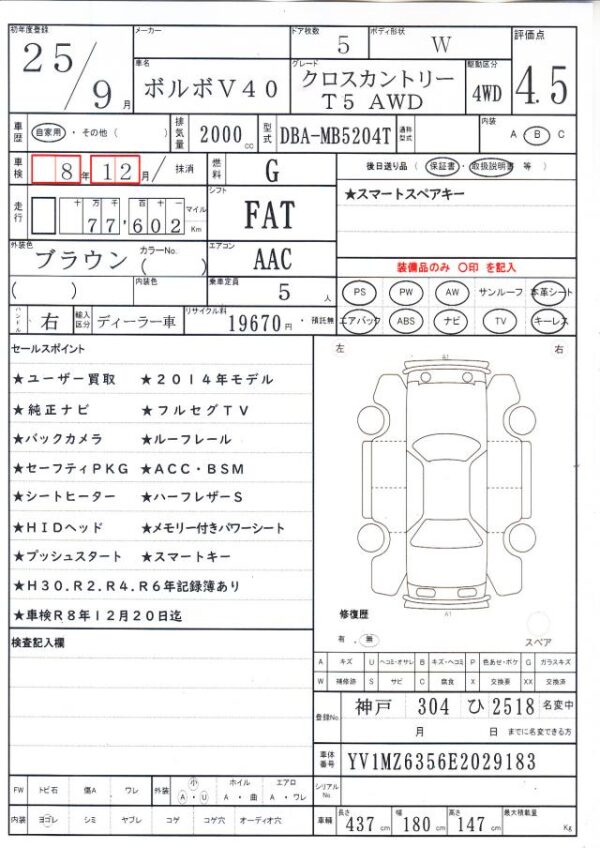 初年度登録 メーカー ドア枚数 5 ボディ形状 W 評価点
25/9月 車名 ボルボV40 グレード クロスカントリー T5 AWD 駆動区分 4WD 4.5
車歴 自家用・その他( ) 排気量 2000cc 型式 DBA-MB5204T 通称型式 内装 A B C
車検 8年12月/ 抹消 燃料 G 後日送り品(保証書・取扱説明書 等)
走行 十万千百十一 77,602 マイル Km シフト FAT ★スマートスペアキー
外装色 ブラウン カラーNo. ( ) エアコン AAC 装備品のみ 〇印 を記入
( ) 内装色 乗車定員 5人 PS PW AW サンルーフ 本革シート
ハンドル 右 輸入区分 ディーラー車 リサイクル料 19670円・預託無 エアバック ABS ナビ TV キーレス
セールスポイント 左 右
★ユーザー買取 ★2014年モデル A1
★純正ナビ ★フルセグTV
★バックカメラ ★ルーフレール
★セーフティPKG ★ACC・BSM
★シートヒーター ★ハーフレザーS
★HIDヘッド ★メモリー付きパワーシート
★プッシュスタート ★スマートキー
★H30.R2.R4.R6年記録簿あり
★車検R8年12月20日迄 修復歴 A1
有.無 スペア
検査記入欄
A キズ U ヘコミ・オサレ B キズ・ヘコミ P 色あせ・ボケ G ガラスキズ
W 補修跡 S サビ C 腐食 X 交換要 XX 交換済
登録No. 神戸 304 ひ 2518 名変中
月 日 までに名変できる方
車体番号 YV1MZ6356E2029183
FW トビ石 傷A ワレ 外装 小 A・U ホイル A・曲 エアロ A・ワレ シリアルNo.
内装 ヨゴレ シミ ヤブレ コゲ コゲ穴 オーディオ穴 車輛 長さ 437cm 幅 180cm 高さ 147cm 最大積載量 Kg